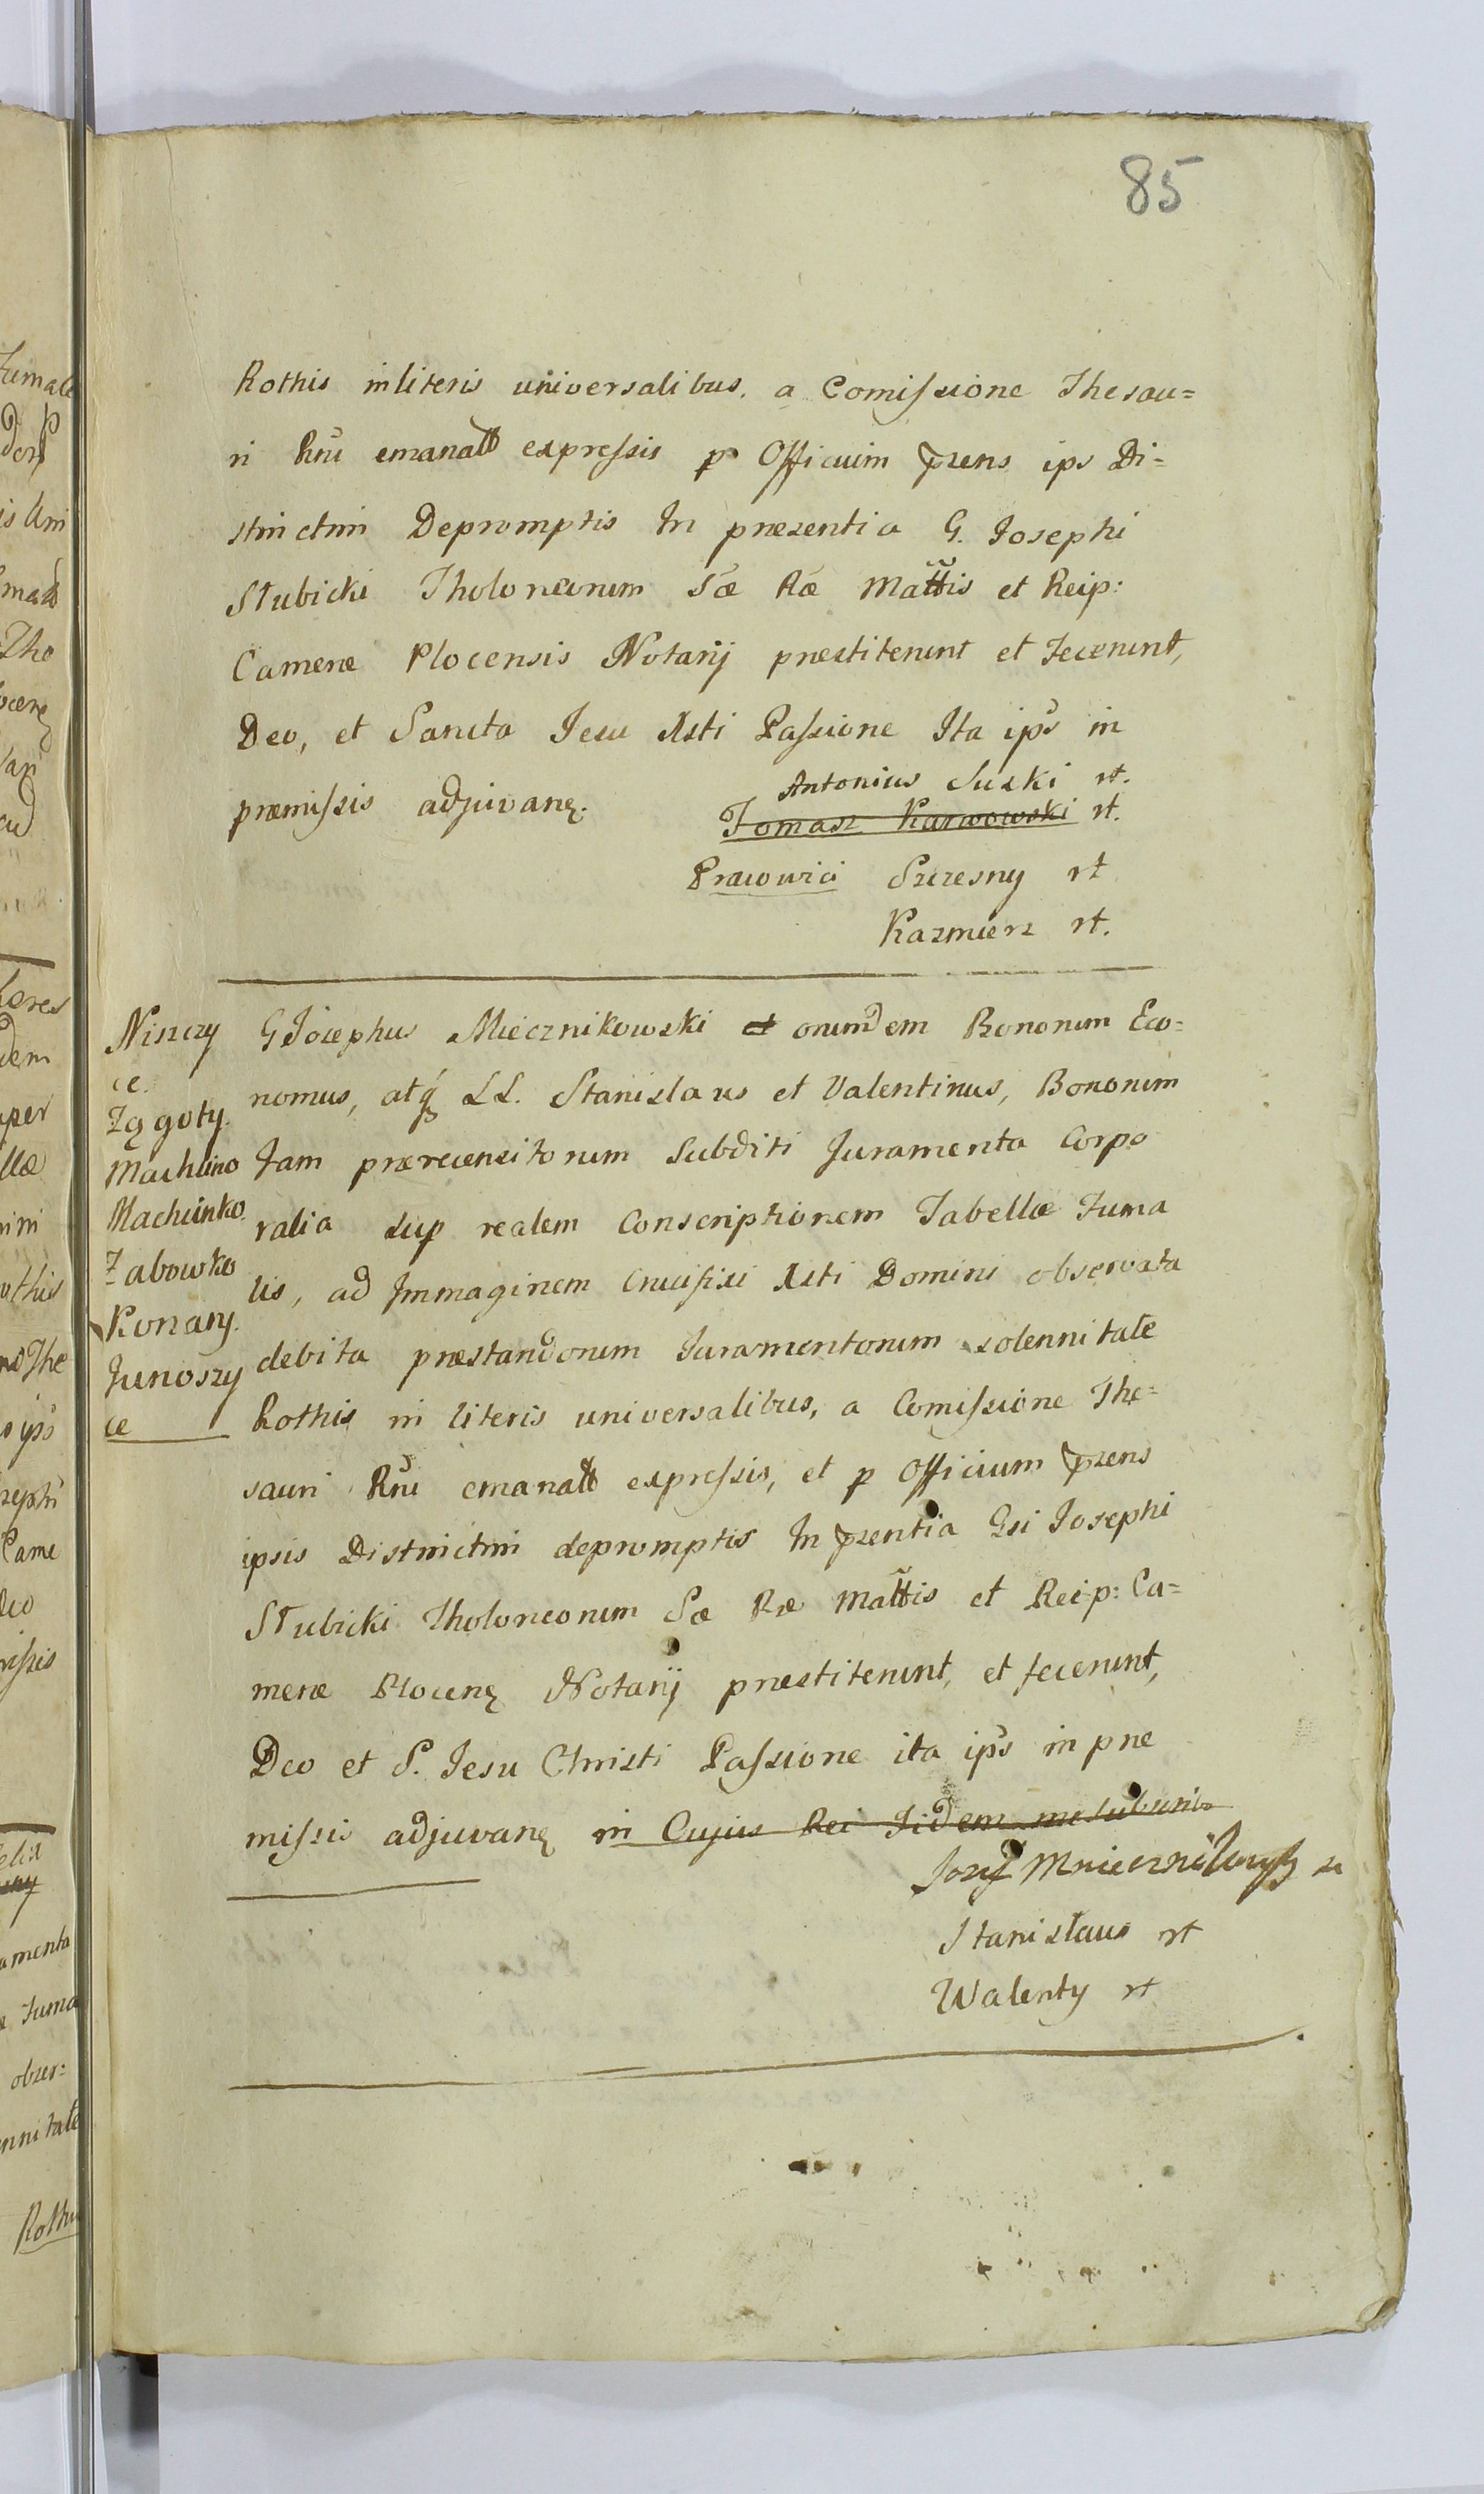 85
Rothis in literis universalibus, a Comissione Thesau=
ri Rni emanatt expressis p Officium przens ips Di=
strictim Depromptis In præsentia G. Josephi
Słubicki Tholoneorum Sæ Ræ Mattis et Reip:
Cameræ Plocensis Notarij præstiterunt et Fecerunt,
Deo, et Sancta Jesu Xsti Passione Ita ips in
præmissis adjuvanę.
Antonius Suski rt.
Tomasz Karwowski rt.
Pracowici Szczesny rt
Kazmierz rt.
Niszczy
ce.
Zągoty.
Machcino
Machcinko.
Zabowko
Konary.
Junoszy
ce
G Josephus Miecznikowski et orumdem Bonorum Eco=
nomus, atq LL. Stanislaus et Valentinus, Bonorum
Jam prærecensitorum Subditi Juramenta Corpo
ralia sup realem Conscriptionem Tabellæ Fuma
lis, ad Immaginem Crucifixi Xsti Domini observata
debita præstandorum Juramentorum solennitate
Rothis in literis universalibus, a Comissione The=
sauri Rni emanatt expressis, et p Officium przens
ipsis Districtim depromptis In przentia Gsi Josephi
Słubicki Tholoneorum Sæ Ræ Mattis et Reip: Ca=
meræ Plocenę Notarij præstiterunt, et fecerunt,
Deo et S. Jesu Christi Passione ita ips in præ
missis adjuvanę in Cujus Rei Fidem me subscribo
Jozef
Stanisłaus rt
Walenty rt